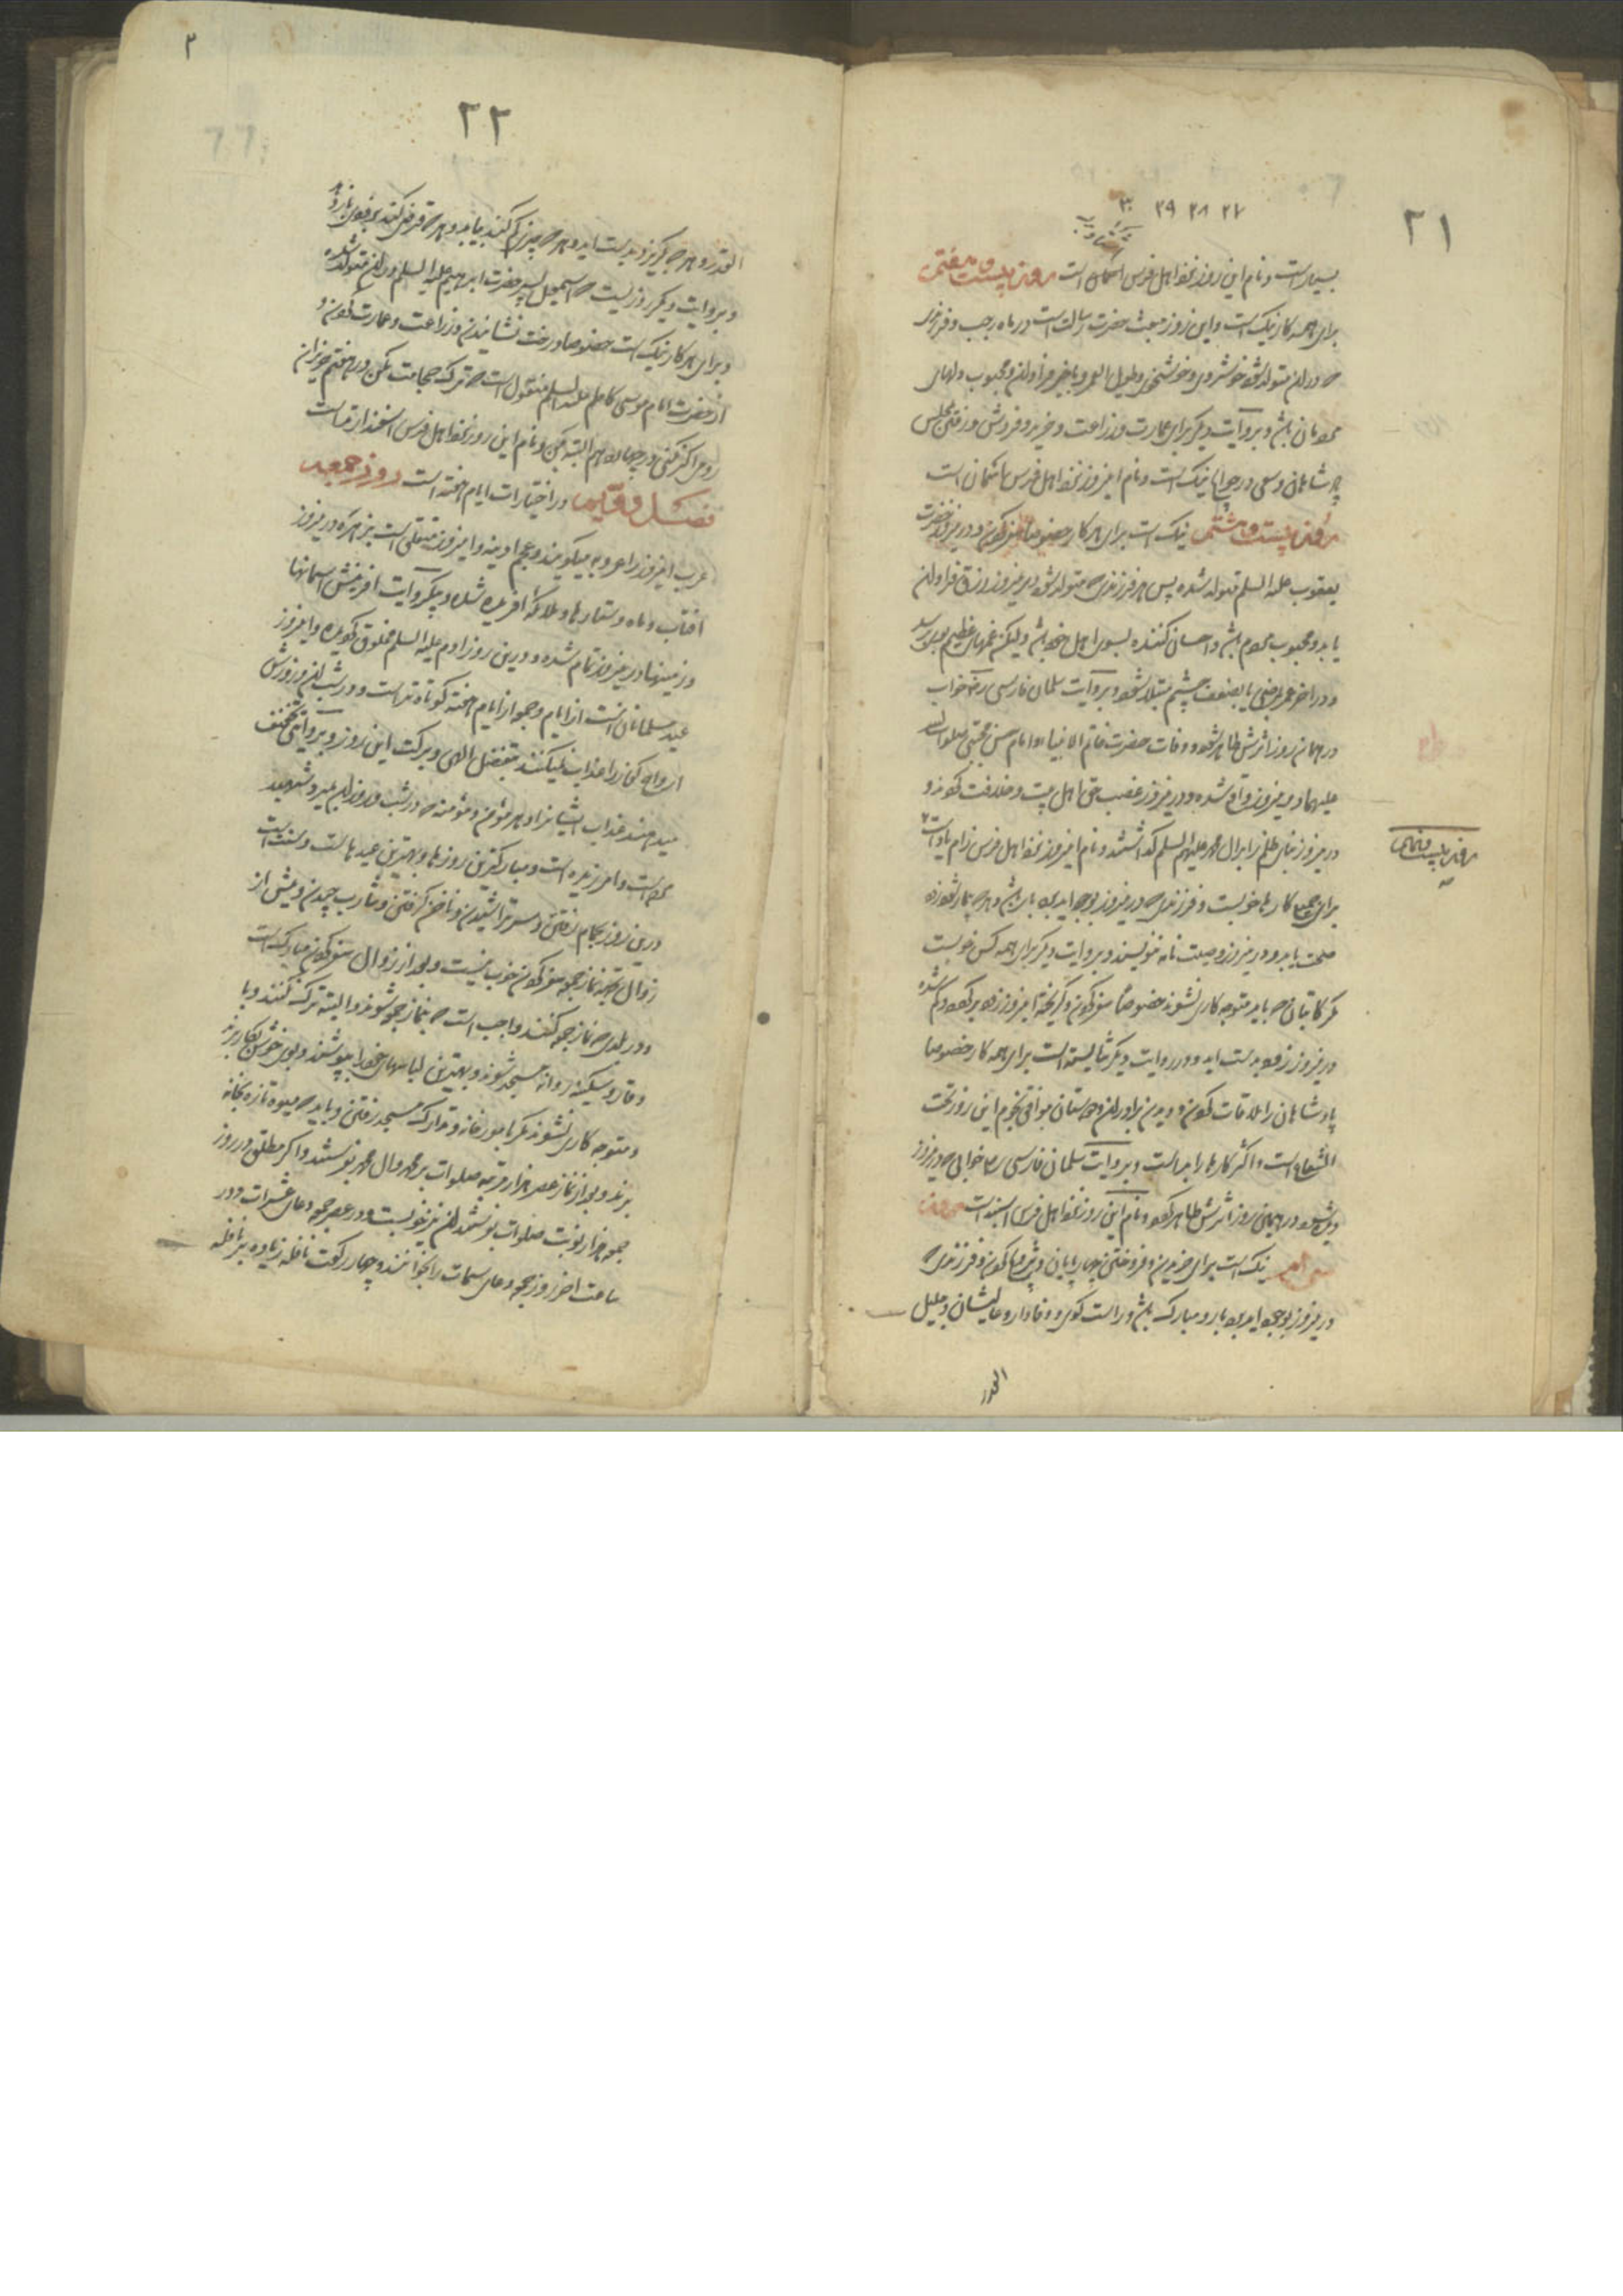 ۲۱
۲۷ ۲۸ ۲۹ ۳۰
بسیار است و نام این روز نزد اهل فرس است روز بیست و هفتم
برای همه کار نیک است و این روز مبعث حضرت رسالت است در ماه رجب و فرزندی
که در ان متولد شود خوشروی و خوشخوی و طویل العمر و با خیر فراوان و محبوب دلهای
مردمان باشد و بروایت دیگر برای عمارت و زراعت و خرید و فروش و رفتن مجلس
پادشاهان و سعی در حوایج نیک است و نام امروز نزد اهل فرس اسمان است
روز بیست و هشتم نیک است برای هر کار خصوصا سفر کردن و درین روز حضرت
یعقوب علیه السلم متولد شده پس هر فرزندی که متولد شود درین روز رزق فراوان
یابد و محبوب مردم باشد و احسان کننده بسوی اهل خود باشد و لیکن غمهای عظیم بوی رسد
و در اخر عمر بمرضی یا بضعف چشم مبتلا شود و بروایت سلمان فارسی رض خواب
در همان روز اثرش ظاهر شود و وفات حضرت خاتم الانبیا و امام حسن مجتبی صلوات الله
علیهما درین روز واقع شده و درین روز غصب حق اهل بیت و خلافت کردند و
درین روز بنای ظلم را بر ال محمد علیهم السلم گذاشتند و نام امروز نزد اهل فرس زامیاد است
روز بیست و نهم
برای جمیع کارها خوبست و فرزندی که درین روز بوجود اید بردبار باشد و هر که بیمار شود زود
صحت یابد و درین روز وصیت نامه ننویسند و بروایت دیگر برای همه کس خوبست
مگر کاتبان که باید متوجه کاری نشوند خصوصا سفر کردن و گریخته امروز زود برگردد و گم شده
درین روز زود بدست اید و در روایت دیگر شایسته است برای همه کار خصوصا
پادشاهان را ملاقات کردن و دیدن برادران و دوستان موافق نجوم این روز تحت
الشعاع است و اکثر کارها را بد است و بروایت سلمان فارسی رض خوابی که درین روز
دیده شود در همان روز اثرش ظاهر گردد و نام این روز نزد اهل فرس است روز
سی ام نیک است برای خریدن و فروختن چهارپایان و کردن و فرزندی که
درین روز بوجود اید بردبار و مبارک باشد و راست گوی و وفادار و عالیشان و جلیل
القدر
۲
۲۲
القدر و هر چه گریزد بدست اید و هر چه چیزی گم کنند بیابند و هر چه قرض کنند بزودی باز دهد
و بروایت دیگر روزیست که اسمعیل پسر حضرت ابرهیم علیه السلم در ان متولد شده
و برای هر کار نیک است خصوصا درخت نشاندن و زراعت و عمارت کردن و
از حضرت امام موسی کاظم علیه السلم منقول است که ترک حجامت مکن در هفتم حزیران
رومی اگر نکنی در چهاردهم البته بکن و نام این روز نزد اهل فرس است
فصل دویم در اختیارات ایام هفته است روز جمعه
عرب امروز را عروبه میگویند و عجم ادینه و امروز متعلق است بزهره درین روز
افتاب و ماه و ستارها و ملائکه افریده شده و بیکروایت افرینش اسمانها
و زمینها درین روز تمام شده و درین روز ادم علیه السلم مخلوق گردیده و امروز
عید مسلمانان است از ایام و جمعه از ایام هفته کوتاه تر است و در شب ان و روزش
ارواح کفار را عذاب نمیکنند بفضل الهی و برکت این روز و بروایتی تخفیف
میدهند عذاب ایشانرا و هر مؤمن و مؤمنه که در شب و روز ان میرد شهید
مرده است و امرزیده است و مبارکترین روزها و بهترین عیدها است و سنت است
درین روز بحمام رفتن و سر تراشیدن و ناخن گرفتن و شارب چیدن و پیش از
زوال بجهة نماز جمعه سفر کردن خوب نیست و بعد از زوال سفر کردن مبارکست
و در بلدی که نماز جمعه کنند واجب است که بنماز جمعه شوند و البته ترک نکنند و با
وقار و سکینه روانه مسجد شوند و بهترین لباسهای خود را بپوشند و بوی خوش بکار برند
و متوجه کاری نشوند مگر بامور خانه و تدارک مسجد رفتن و باید که میوه تازه بخانه
برند و بعد از نماز عصر هزار مرتبه صلوات بر محمد و ال محمد بفرستند و اگر مطلق در روز
جمعه هزار نوبت صلوات بفرستند ان نیز خوبست و در عصر جمعه دعای عشرات و در
ساعت اخر روز جمعه دعای سمات را بخوانند و چهار رکعت نافله زیاده بر نافله